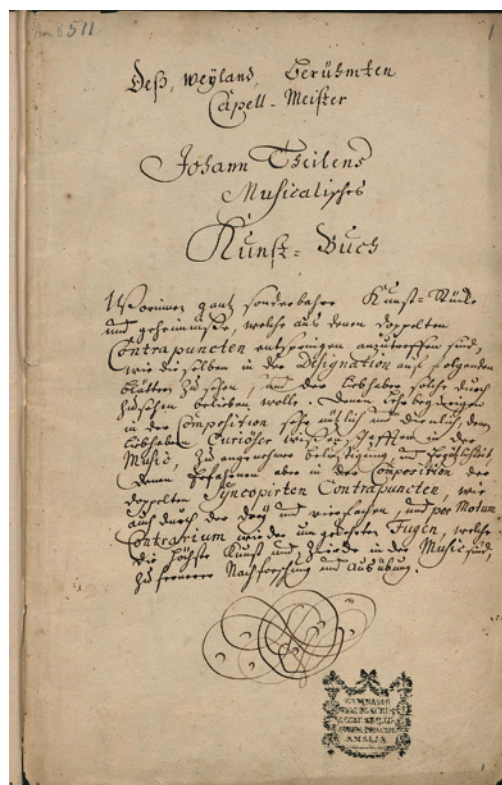 511
1
Deß, weÿland, Berühmten
Capell-Meister
Johann Theilens
Musicalisches
Kunst-Buch
Worinnen gantz sonderbahre Kunst-Stücke
und geheimniße, welche aus denen doppelten
Contrapuncten entspringen anzutreffen sind,
wie dieselben in der Designation auf folgenden
blättern zu sehen, und der liebhaber solche durch
zusehen belieben wolle. Denen Lehrbegierigen
in der Composition sehr nützlich und dienlich, den
liebhabern Curiöser wißenschafften in der
Music, zu angenehmer belustigung, und Ergötzlichkeit
Denen Erfahrnen aber in der Composition der
doppelten Syncopirten Contrapuncten, wie
auch durch der dreÿ und vierfachen, und per Motum
Contrarium wieder umgekehrten Fugen, welche
die höchste Kunst und Zierde in der Music sind,
zu fernerer Nachforschung und Ausübung.
GYMNASII
AMALIA